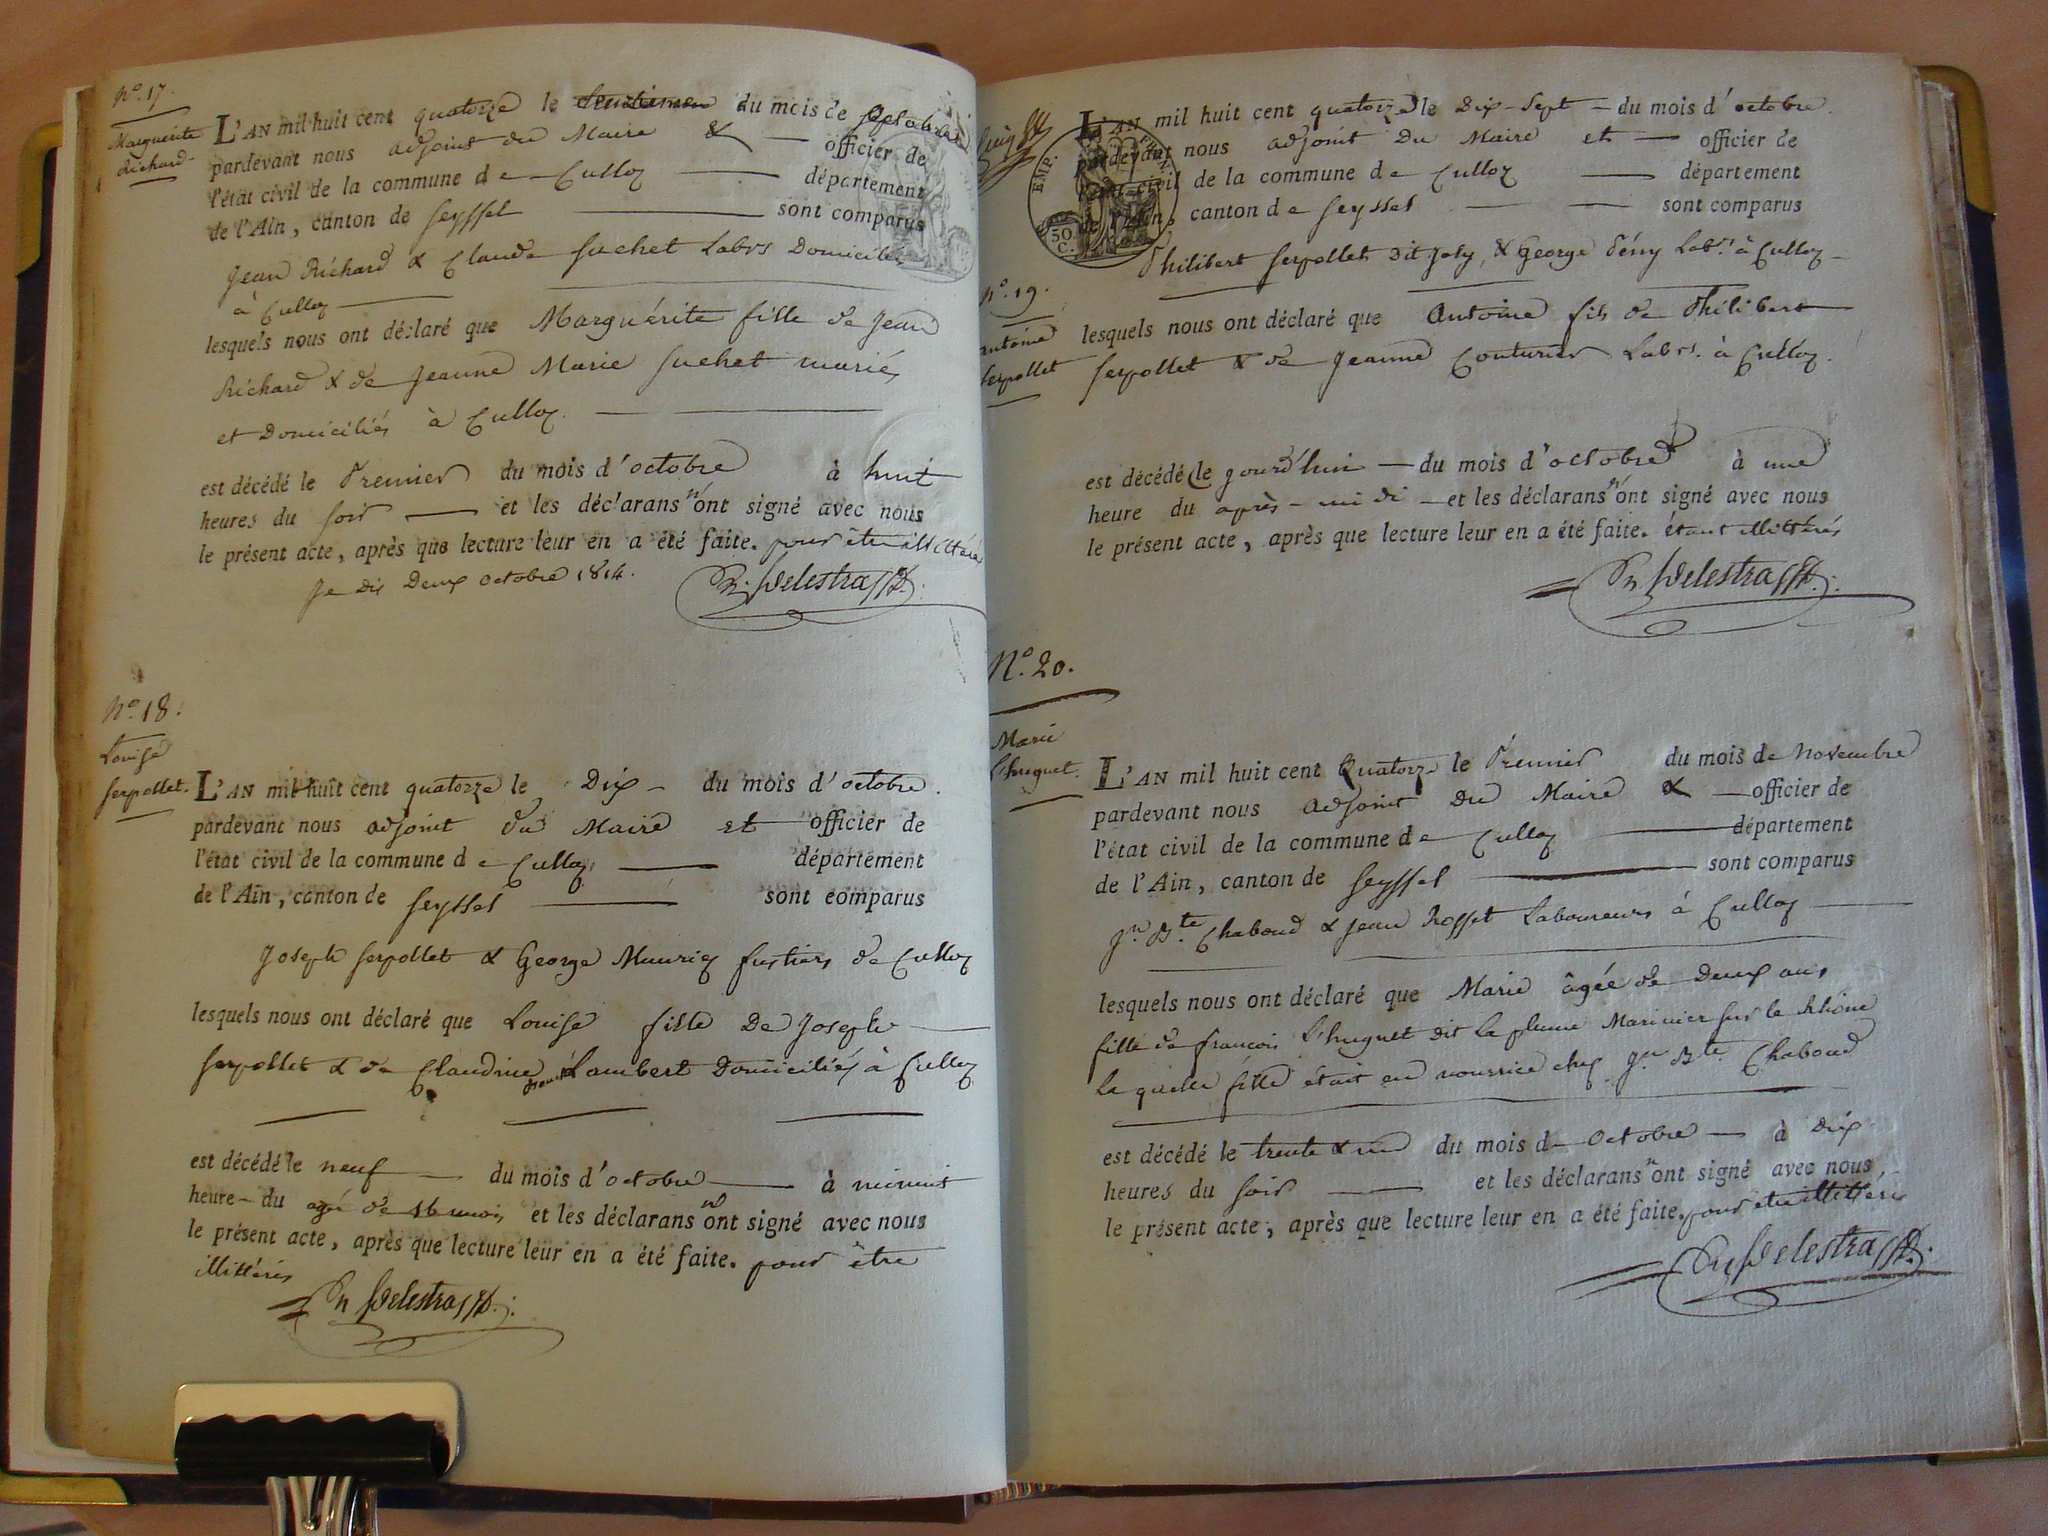 N.º 17.
Marguerite
Richard
L'AN mil huit cent quatorze le du mois de octobre
pardevant nous adjoint du Maire & officier de
l'état civil de la commune de Culloz département
de l'Ain, canton de Seyssel sont comparus
Jean Richard & Claude Suchet Labrs Domiciliés
à Culloz
lesquels nous ont déclaré que Marguérite fille de Jean
Richard & de Jeanne Marie Suchet mariés
et Domiciliés à Culloz.
est décédé le Premier du mois d'octobre à huit
heures du soir et les déclarans n'ont signé avec nous
le présent acte, après que lecture leur en a été faite. pour être illittérés
Je dis Deux octobre 1814.
Pn. Delestra
N.º 18.
Louise
Serpollet.
L'AN mil huit cent quatorze le Dix du mois d'octobre.
pardevant nous adjoint du Maire et officier de
l'état civil de la commune de Culloz département
de l'Ain, canton de Seyssel sont comparus
Joseph Serpollet & George Mauriz fustiers de Culloz
lesquels nous ont déclaré que Louise fille De Joseph
Serpollet & de Claudine Lambert Domiciliés à Culloz
est décédé le neuf du mois d'octobre à minuit
heure du agée de 16 mois et les déclarans n'ont signé avec nous
le présent acte, après que lecture leur en a été faite. pour être
illittérés
Pn Delestra
EMP.
50
C.
L'AN mil huit cent quatorze le Dix-Sept du mois d'octobre.
pardevant nous adjoint Du Maire et officier de
l'état civil de la commune de Culloz département
de l'Ain, canton de Seyssel sont comparus
Philibert Serpollet Dit Joly, & George Labrs à Culloz
N.º 19.
antoine
Serpollet
lesquels nous ont déclaré que Antoine fils de Philibert
Serpollet & de Jeanne Couturier Labrs. à Culloz.
est décédé le jourd'hui du mois d'octobre à une
heure du après-midi et les déclarans n'ont signé avec nous
le présent acte, après que lecture leur en a été faite. étant illittérés
Pn. Delestra
N.º 20.
Marie
L'huguet.
L'AN mil huit cent Quatorze le Premier du mois de Novembre
pardevant nous adjoint Du Maire & officier de
l'état civil de la commune de Culloz département
de l'Ain, canton de Seyssel sont comparus
Jn. Bte. Chaboud & Jean Rosset Laboureurs à Culloz
lesquels nous ont déclaré que Marie âgée de Deux ans
fille de francois L'huguet dit la plume Marinier sur le Rhône
la quelle fille était en nourrice chez Jn Bte Chaboud
est décédé le trente & un du mois d'octobre à Dix
heures du soir et les déclarans n'ont signé avec nous
le présent acte, après que lecture leur en a été faite. pour être illittérés
Delestra